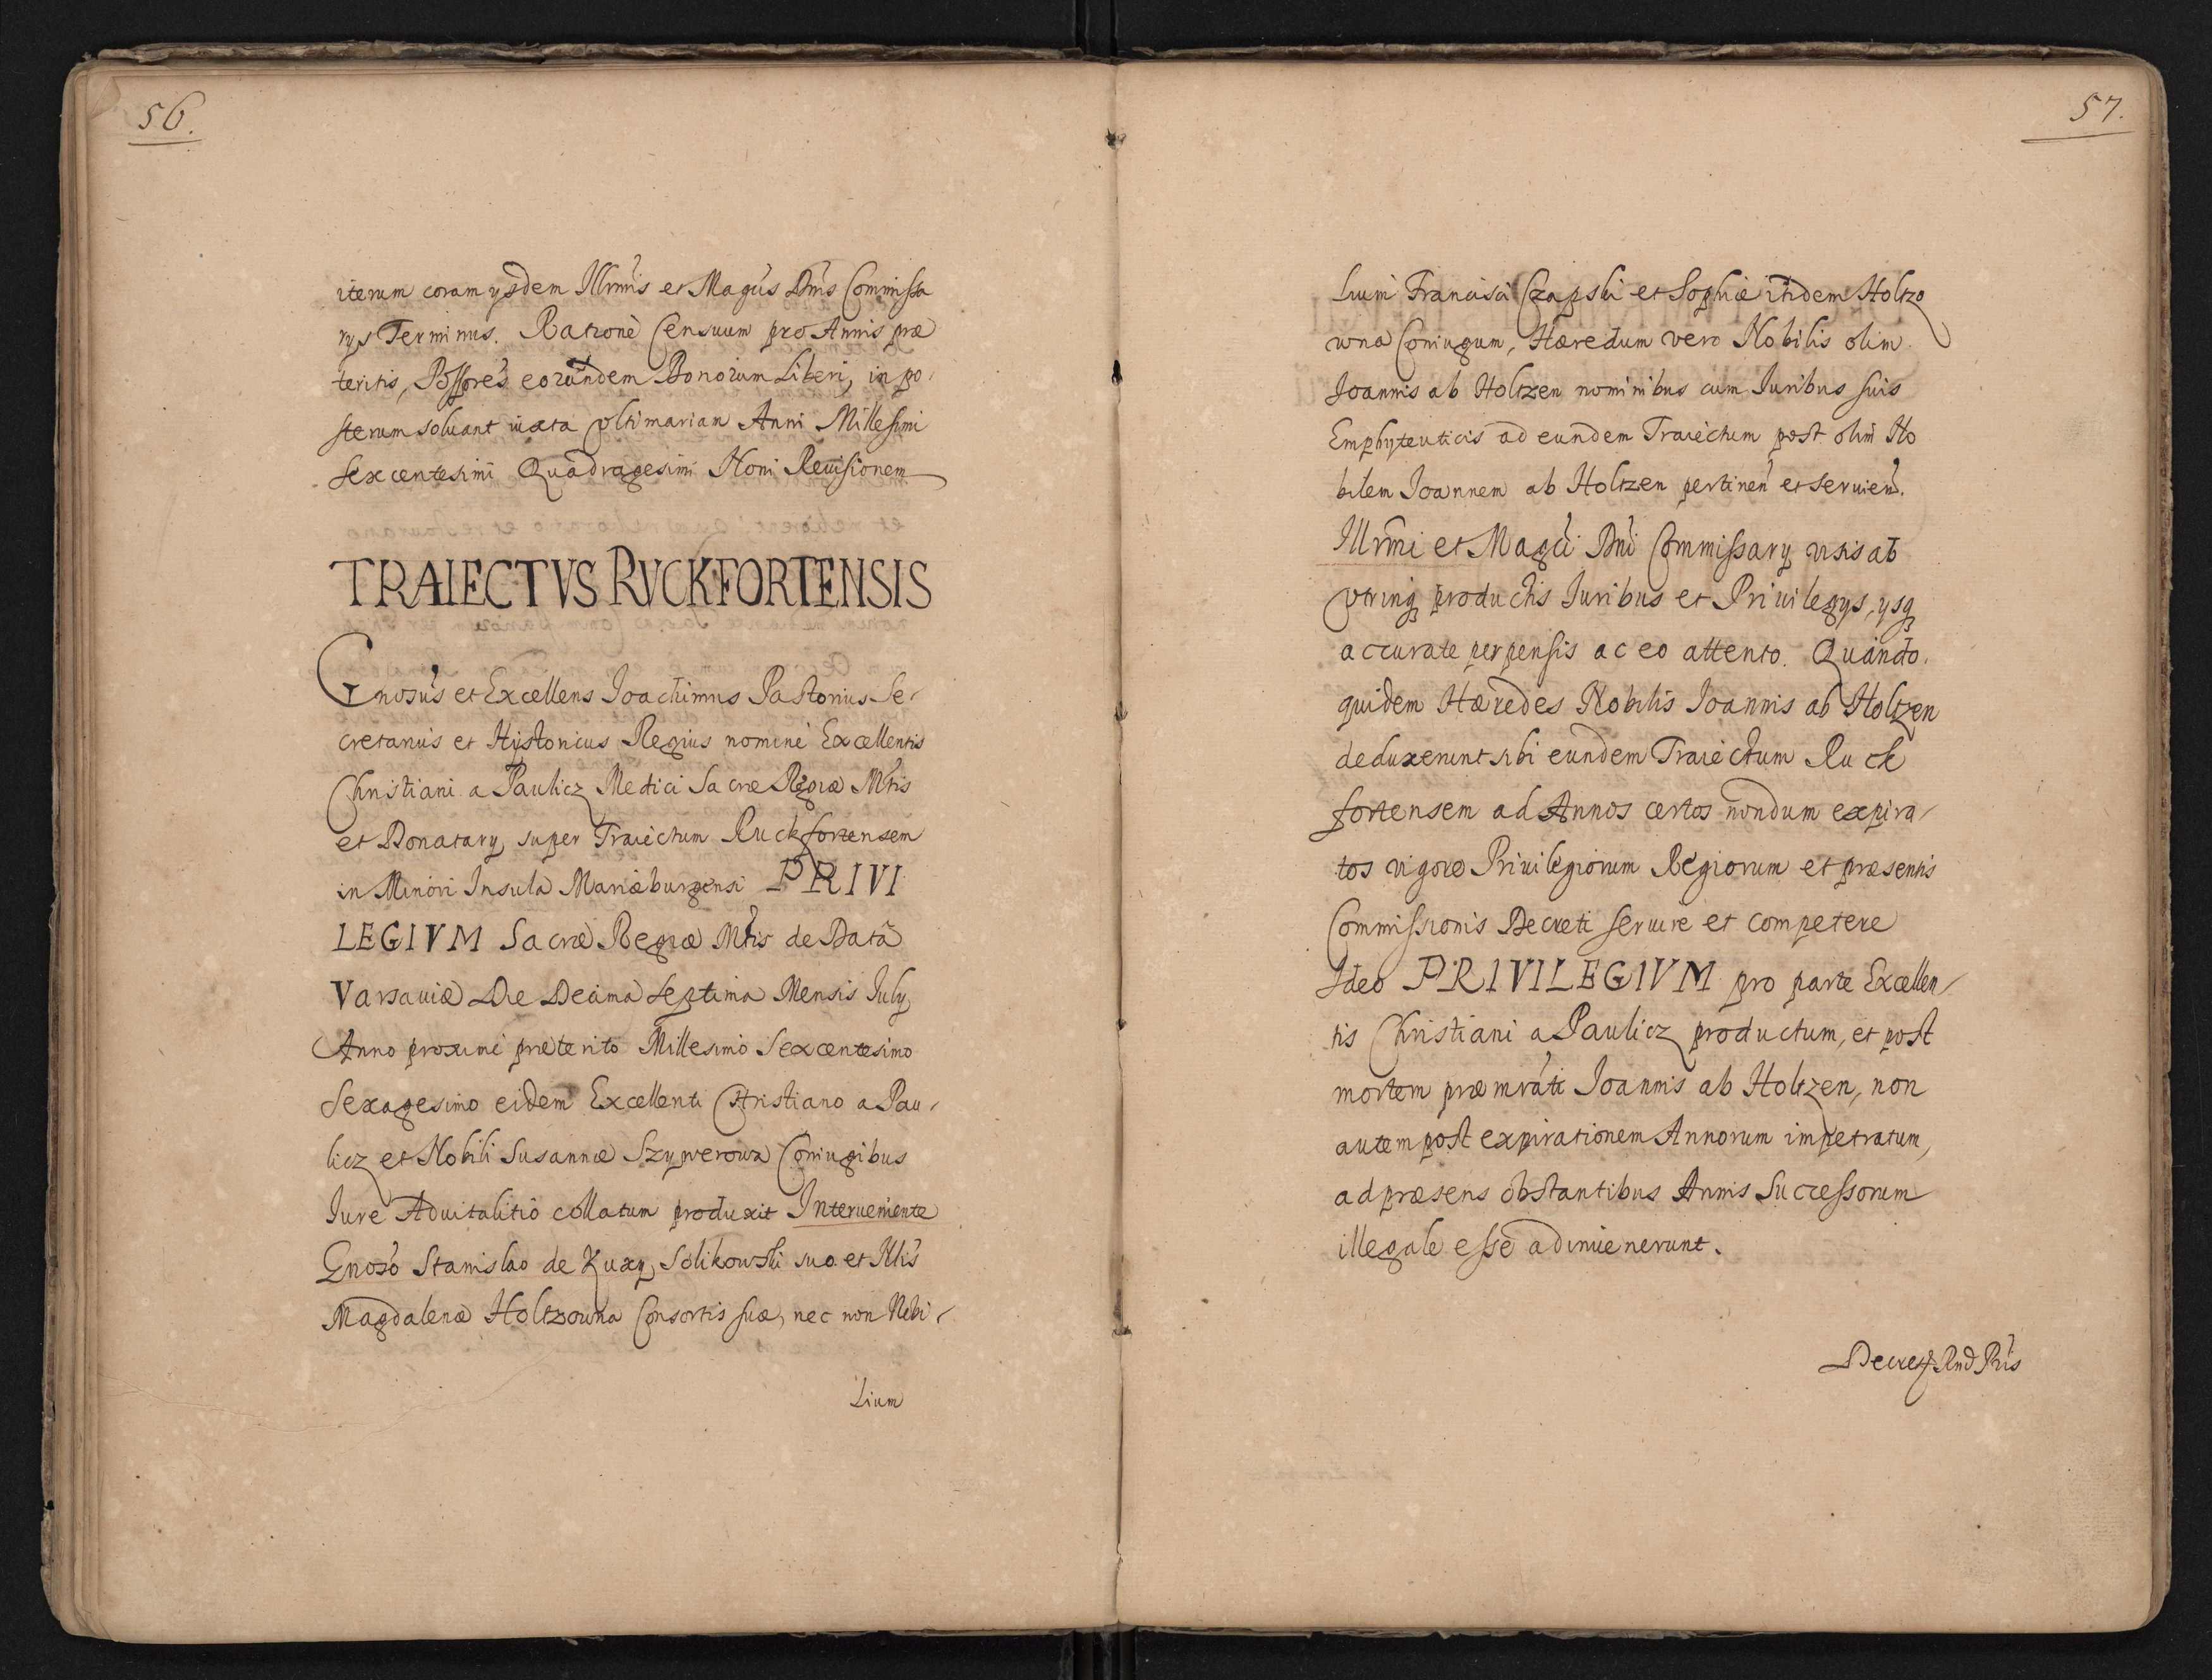 56.
iterum coram ysdem Illrmis et Magcis Dnis Commissa
rys Terminus. Ratione Censuum pro Annis præ
teritis, Possores eorundem Bonorum Liberi, in po,
sterum soluant iuxta vltimariam Anni Millesimi
Sexcentesimi Quadragesimi Noni Reuisionem
TRAIECTVS RVCKFORTENSIS
Gnosus et Excellens Joachimus Pastorius Se,
cretarius et Hystoricus Regius nomine Excellentis
Christiani a Paulicz Medici Sacræ Regiæ Mtis
et Donatary, super Traiectum Ruckfortensem
in Minori Insula Mariæburgensi PRIVI
LEGIVM Sacræ Regiæ Mtis de Data
Varsauiæ Die Decima Septima Mensis July
Anno proxime præterito Millesimo Sexcentesimo
Sexagesimo eidem Excellenti Christiano a Pau,
licz et Nobili Susannæ Szywerowa Coniugibus
Iure Aduitalitio collatum produxit Interueniente
Gnoso Stanislao de Zuxy, Solikowski suo et Mtis
Magdalenæ Holtzowna Consortis suæ, nec non Nobi,
Lium
57.
Lium Francisci Czapski et Sophiæ itidem Holtzo
wna Coniugum, Hæredum vero Nobilis olim
Joannis ab Holtzen nominibus cum Iuribus suis
Emphyteuticis ad eundem Traiectum post olim No
bilem Joannem ab Holtzen pertinen et seruien.
Illrmi et Magci Dni Commissary visis ab
vtrinq productis Iuribus et Priuilegys, ysq
accurate perpensis ac eo attento. Quando,
quidem Hæredes Nobilis Joannis ab Holtzen
deduxerunt sibi eundem Traiectum Ruck
fortensem ad Annos certos nondum expira,
tos vigore Priuilegiorum Regiorum et præsentis
Commissionis Decreti seruire et competere
Ideo PRIVILEGIVM pro parte Excellen,
tis Christiani a Paulicz productum, et post
mortem præmrati Joannis ab Holtzen, non
autem post expirationem Annorum impetratum,
ad præsens obstantibus Annis Successorum
illegale esse adinuenerunt.